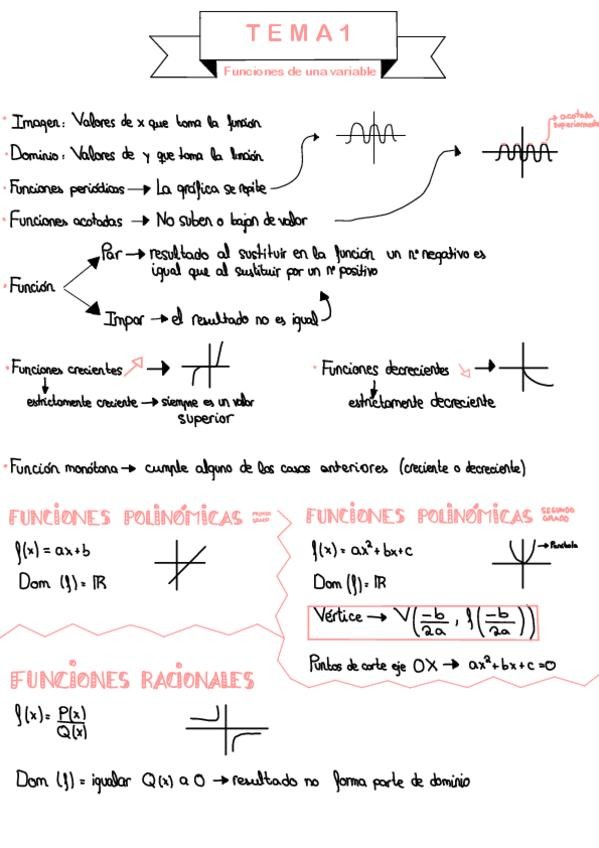 TEMA1
Funciones de una variable
· Imagen: Valores de x que toma la función
· Dominio: Valores de y que toma la función
· Funciones periódicas → La gráfica se repite
acotada
superiormente
· Funciones acotadas → No suben o bajan de valor
· Función
Par → resultado al sustituir en la función un nº negativo es
igual que al sustituir por un nº positivo
Impar → el resultado no es igual
· Funciones crecientes ↗ →
estrictamente creciente → siempre es un valor
superior
· Funciones decrecientes ↘ →
estrictamente decreciente
· Función monótona → cumple alguno de los casos anteriores (creciente o decreciente)
FUNCIONES POLINÓMICAS PRIMER GRADO
f(x) = ax+b
Dom (f) = ℝ
FUNCIONES POLINÓMICAS SEGUNDO GRADO
f(x) = ax²+bx+c
→ Parábola
Dom (f) = ℝ
Vértice → V(-b/2a , f(-b/2a))
Puntos de corte eje OX → ax²+bx+c=0
FUNCIONES RACIONALES
f(x) = P(x)/Q(x)
Dom (f) = igualar Q(x) a 0 → resultado no forma parte de dominio